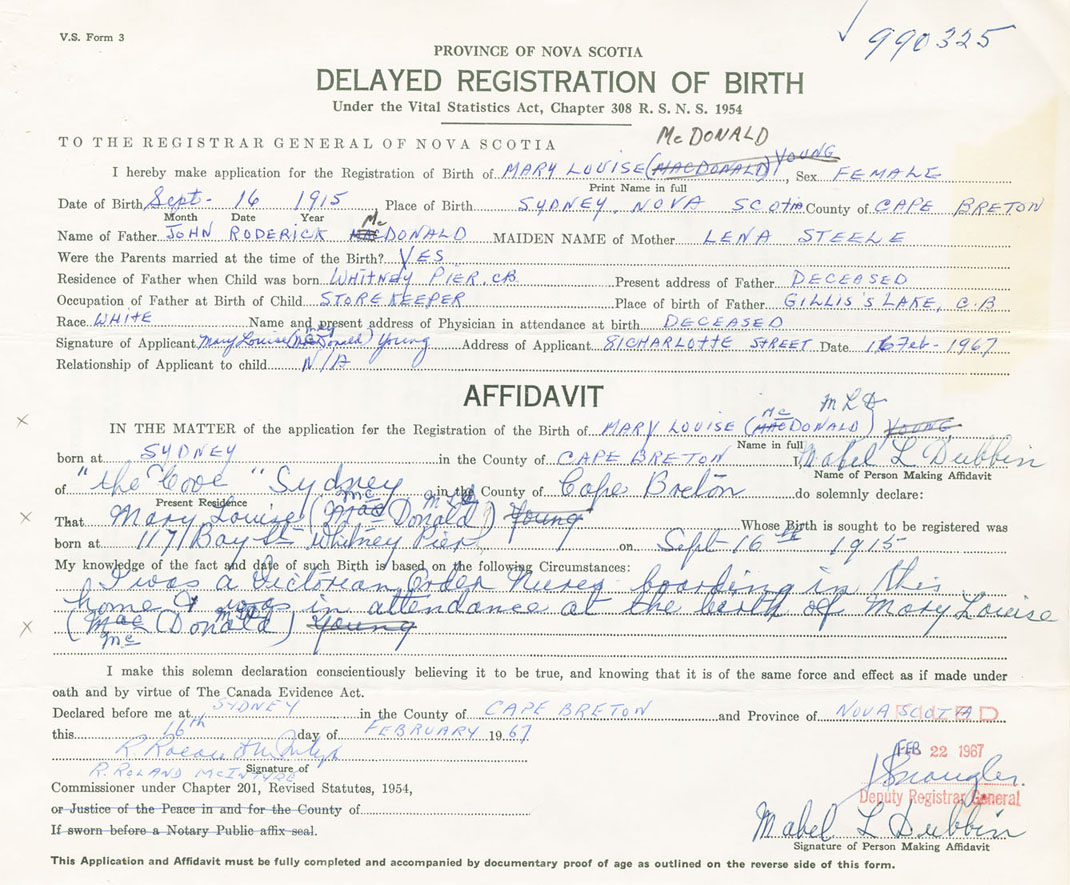 V.S. Form 3
990325
PROVINCE OF NOVA SCOTIA
DELAYED REGISTRATION OF BIRTH
Under the Vital Statistics Act, Chapter 308 R. S. N. S. 1954
TO THE REGISTRAR GENERAL OF NOVA SCOTIA
McDONALD
I hereby make application for the Registration of Birth of MARY LOUISE (MACDONALD) YOUNG, Sex FEMALE
Print Name in full
Date of Birth Sept- 16 1915 Place of Birth SYDNEY, NOVA SCOTIA County of CAPE BRETON
Month Date Year Mc
Name of Father JOHN RODERICK MACDONALD MAIDEN NAME of Mother LENA STEELE
Were the Parents married at the time of the Birth? YES
Residence of Father when Child was born WHITNEY PIER, CB Present address of Father DECEASED
Occupation of Father at Birth of Child STOREKEEPER Place of birth of Father GILLIS'S LAKE, C.B
Race WHITE Name and present address of Physician in attendance at birth DECEASED
Signature of Applicant Mary Louise (MacDonald) Young Address of Applicant 81 CHARLOTTE STREET Date 16 Feb- 1967
Relationship of Applicant to child N/A
AFFIDAVIT
Mc M L D
IN THE MATTER of the application for the Registration of the Birth of MARY LOUISE (MACDONALD) YOUNG
Name in full
born at SYDNEY in the County of CAPE BRETON I, Mabel L Dubbin
Name of Person Making Affidavit
of "the Cove" Sydney in the County of Cape Breton do solemnly declare:
Present Residence
Mc M L D
That Mary Louise (MacDonald) Young Whose Birth is sought to be registered was
born at 1171 Bay St Whitney Pier on Sept 16th 1915
My knowledge of the fact and date of such Birth is based on the following Circumstances:
I was a Victorian Order Nurse boarding in this
home & was in attendance at the birth of Mary Louise
(Mac Donald) Young
Mc
I make this solemn declaration conscientiously believing it to be true, and knowing that it is of the same force and effect as if made under
oath and by virtue of The Canada Evidence Act.
Declared before me at SYDNEY in the County of CAPE BRETON and Province of NOVA SCOTIA
this 16th day of FEBRUARY 1967
FEB 22 1967
Signature of
R. ROLAND McINTYRE
Commissioner under Chapter 201, Revised Statutes, 1954,
Deputy Registrar General
or Justice of the Peace in and for the County of
If sworn before a Notary Public affix seal.
Mabel L Dubbin
Signature of Person Making Affidavit
This Application and Affidavit must be fully completed and accompanied by documentary proof of age as outlined on the reverse side of this form.